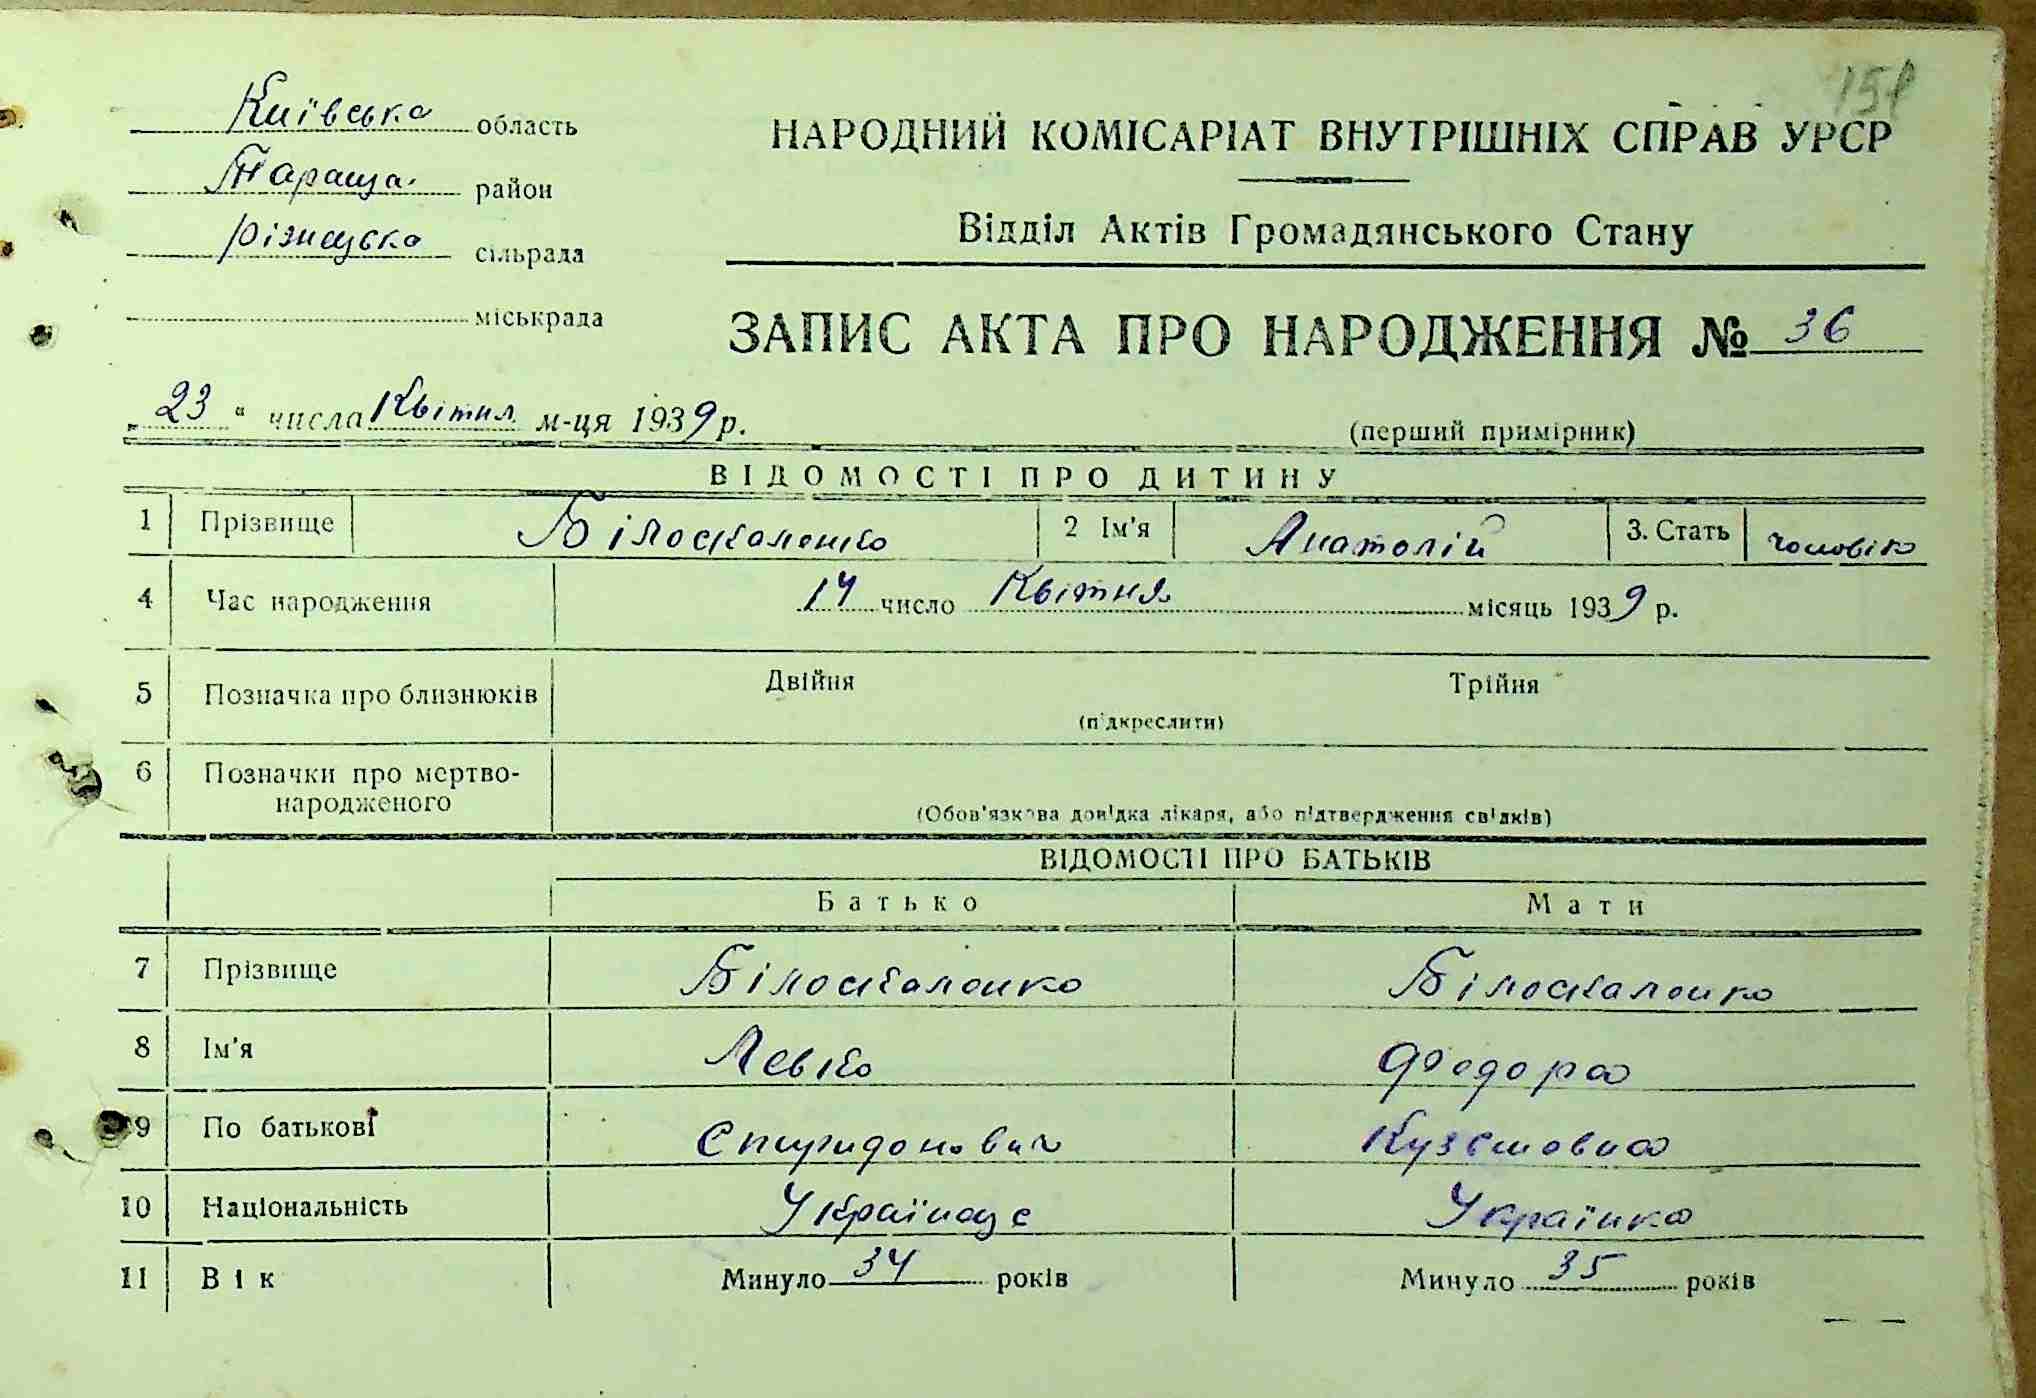 158
Київська область
НАРОДНИЙ КОМІСАРІАТ ВНУТРІШНІХ СПРАВ УРСР
Тараща. район
Відділ Актів Громадянського Стану
Різнецька сільрада
міськрада
ЗАПИС АКТА ПРО НАРОДЖЕННЯ № 36
„ 23 “ числа Квітня м-ця 1939 р.
(перший примірник)
ВІДОМОСТІ ПРО ДИТИНУ
1 Прізвище Білоскаленко 2 Ім'я Анатолій 3. Стать чоловік
4 Час народження 14 число Квітня місяць 1939 р.
5 Позначка про близнюків Двійня Трійня
(підкреслити)
6 Позначки про мертво-
народженого
(Обов'язкова довідка лікаря, або підтвердження свідків)
ВІДОМОСТІ ПРО БАТЬКІВ
Батько Мати
7 Прізвище Білоскаленко Білоскаленко
8 Ім'я Левко Федора
9 По батькові Спиридонович Кузьмовна
10 Національність Українець Українка
11 Вік Минуло 34 років Минуло 35 років